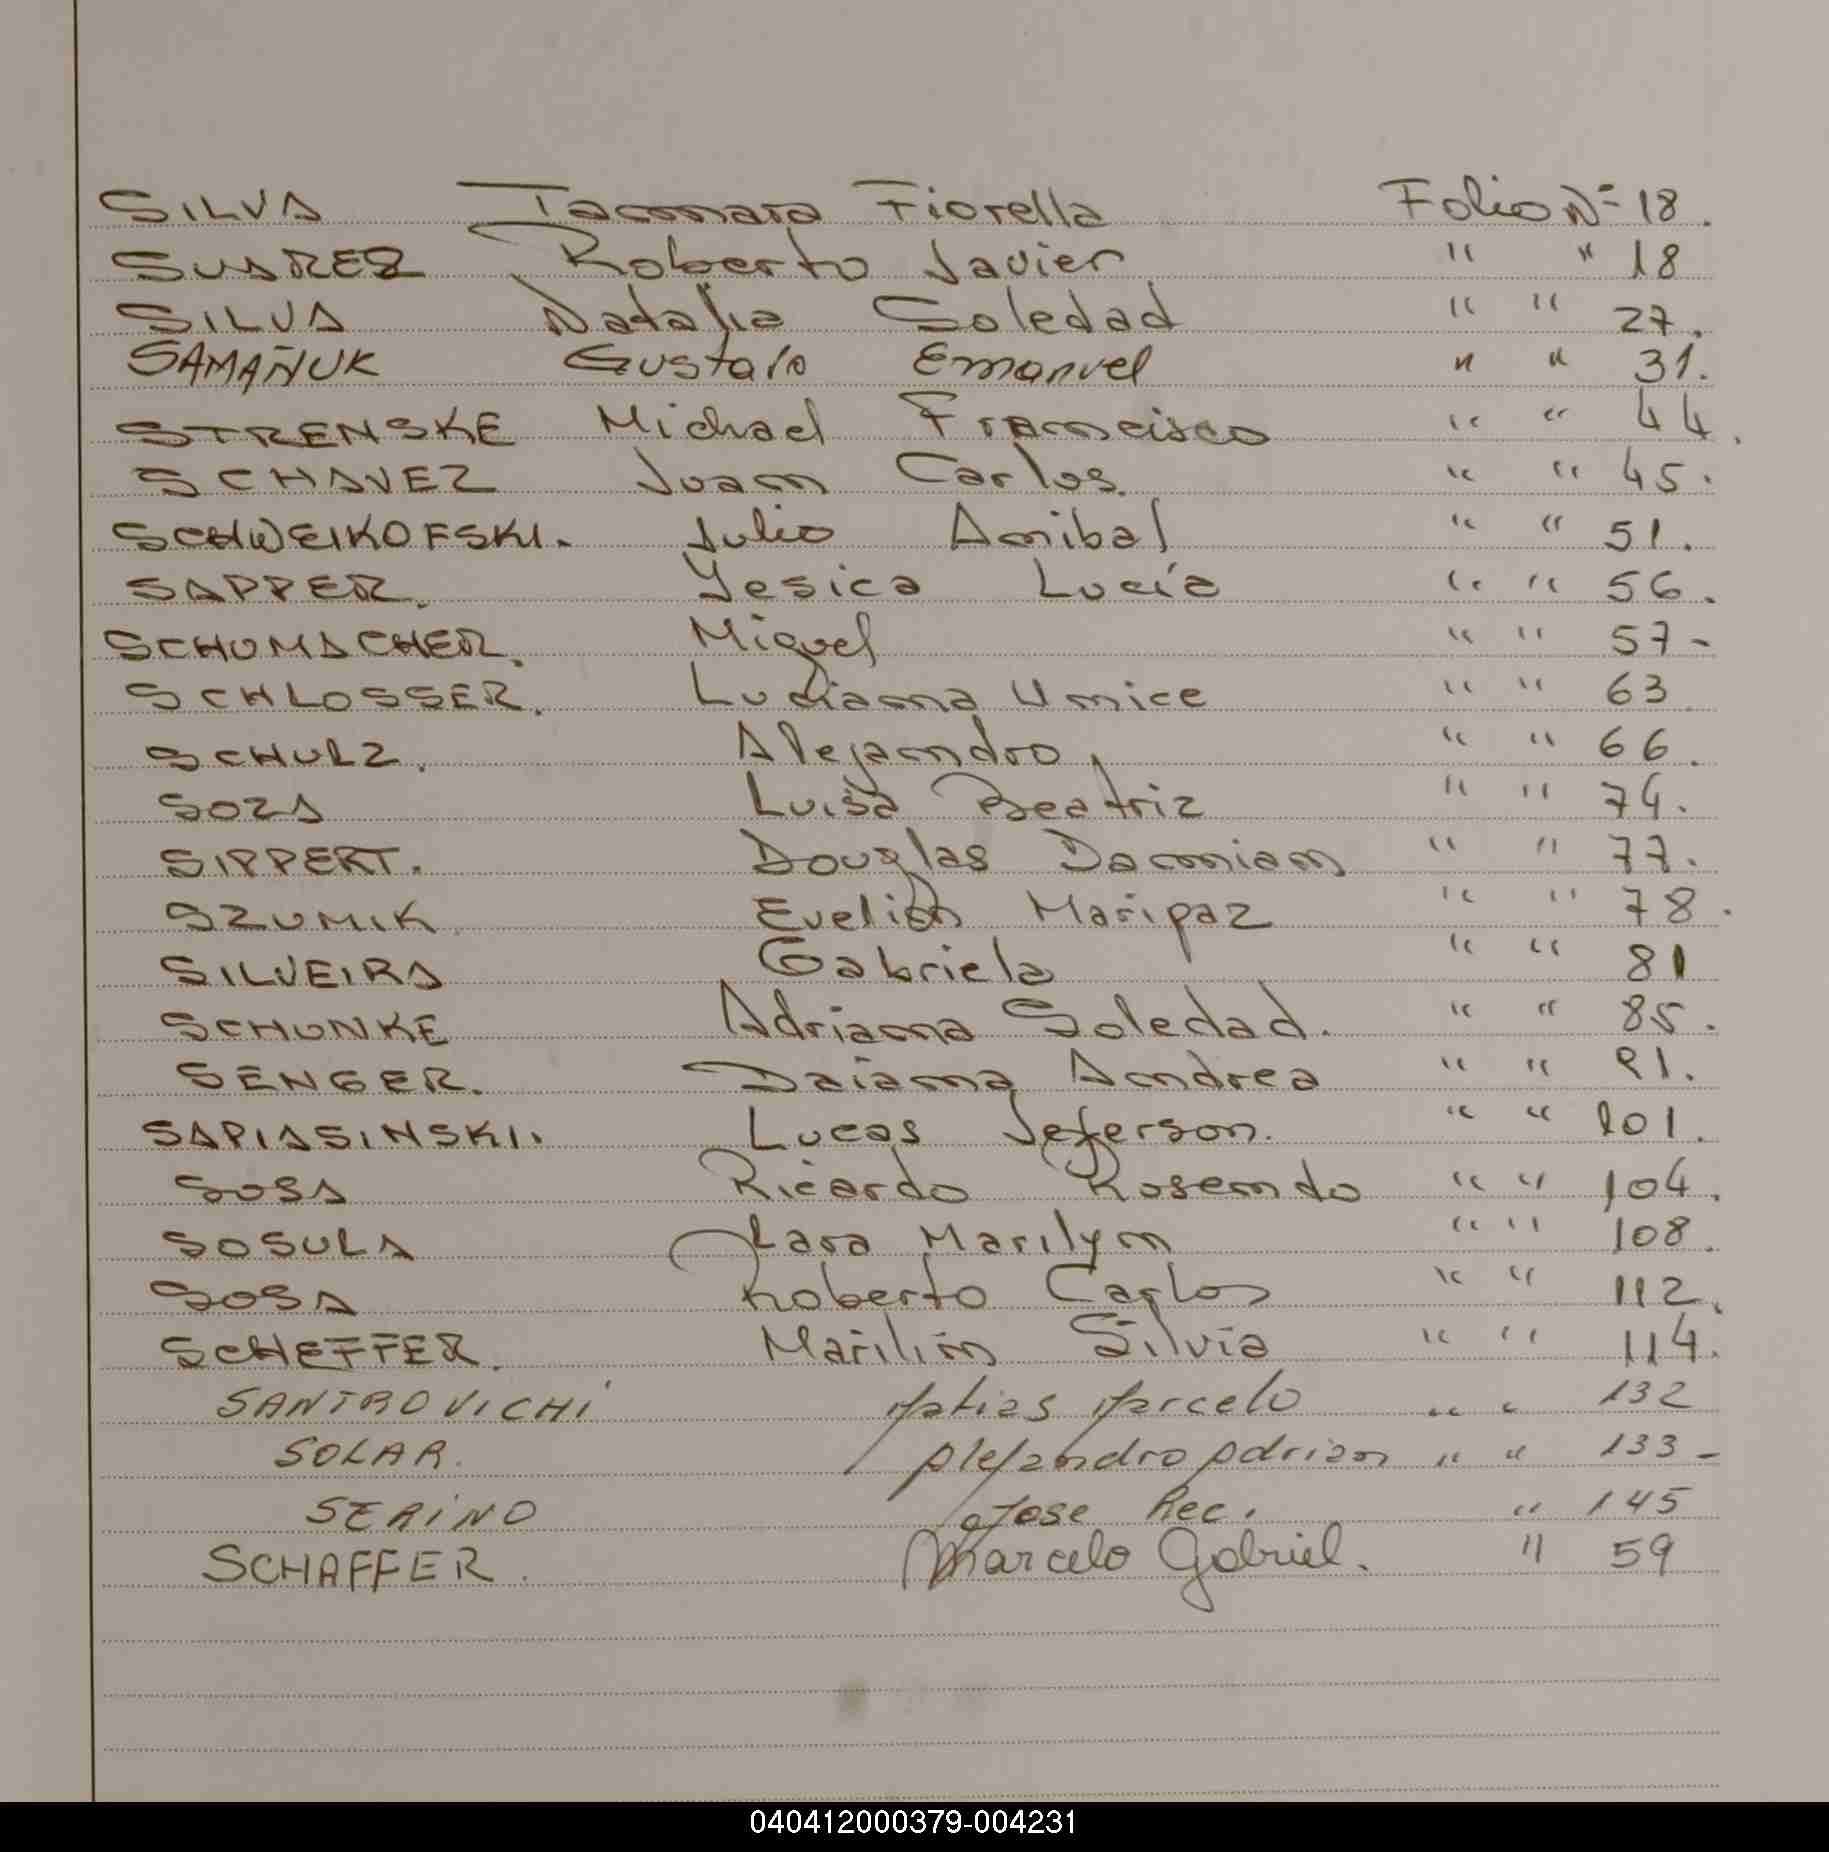 SILVA Tamara Fiorella Folio Nº 18.
SUAREZ Roberto Javier " " 18
SILVA Natalia Soledad " " 27.
SAMAÑUK Gustavo Emanuel " " 31.
STRENSKE Michael Francisco " " 44.
SCHAVEZ Juan Carlos. " " 45.
SCHWEIKOFSKI. Julio Anibal " " 51.
SAPPER. Yesica Lucía " " 56.
SCHUMACHER. Miguel " " 57-
SCHLOSSER. Luciana Unice " " 63
SCHULZ. Alejandro " " 66.
SOZA Luisa Beatriz " " 74.
SIPPERT. Douglas Damian " " 77.
SZUMIK Evelin Maripaz " " 78.
SILVEIRA Gabriela " " 81
SCHUNKE Adriana Soledad. " " 85.
SENGER. Daiana Andrea " " 91.
SAPIASINSKI. Lucas Jeferson. " " 101.
SOSA Ricardo Rosendo " " 104.
SOSULA Lara Marilyn " " 108.
SOSA Roberto Carlos " " 112.
SCHEFFER. Marilin Silvia " " 114.
SANTROVICHI Matias Marcelo " " 132
SOLAR. Alejandro Adrian " " 133-
SERINO Jose Rec. " 145
SCHAFFER. Marcelo Gabriel. " 59
040412000379-004231